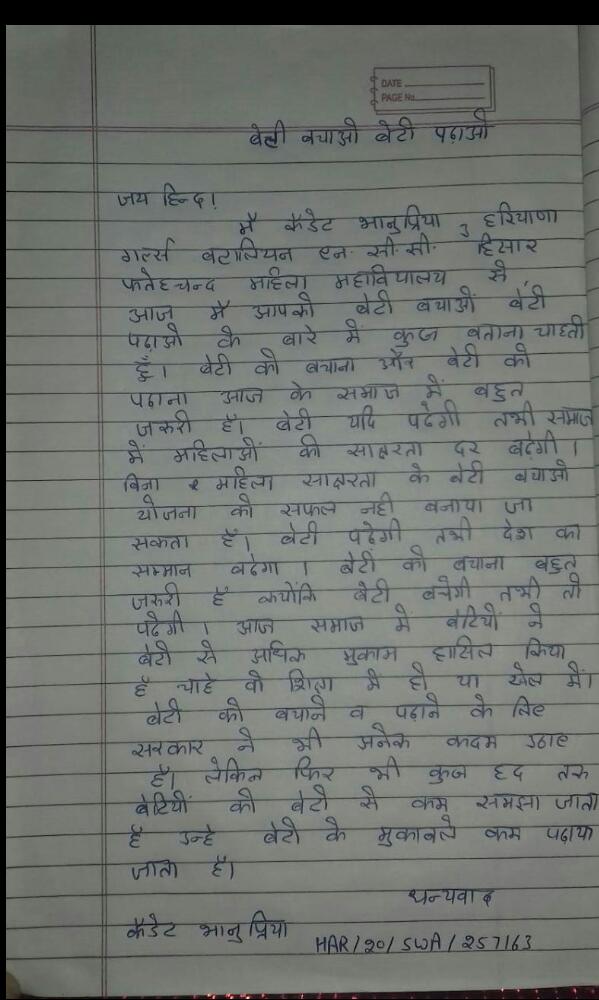 DATE
PAGE No.
बेटी बचाओ बेटी पढ़ाओ
जय हिन्द।
मै कैडेट भानुप्रिया, हरियाणा
गर्ल्स बटालियन एन. सी. सी. हिसार
फतेहचन्द महिला महाविद्यालय से,
आज मै आपको बेटी बचाओं बेटी
पढ़ाओ के बारे में कुछ बताना चाहती
हूँ। बेटी को बचाना और बेटी को
पढ़ाना आज के समाज में बहुत
जरुरी है। बेटी यदि पढेगी तभी समाज
में महिलाओं की साक्षरता दर बढ़ेगी।
बिना महिला साक्षरता के बेटी बचाओ
योजना को सफल नही बनाया जा
सकता है। बेटी पढ़ेगी तभी देश का
सम्मान बढेगा। बेटी को बचाना बहुत
जरुरी है क्योंकि बेटी बचेगी तभी तो
पढेगी। आज समाज में बेटियों ने
बेटो से अधिक मुकाम हासिल किया
है चाहे वो शिक्षा में हो या खेल में।
बेटी को बचाने व पढ़ाने के लिए
सरकार ने भी अनेक कदम उठाए
है। लेकिन फिर भी कुछ हद तक
बेटियों को बेटो से कम समझा जाता
है उन्हे बेटो के मुकाबले कम पढ़ाया
जाता है।
धन्यवाद
कैडेट भानुप्रिया
HAR/20/SWA/257163